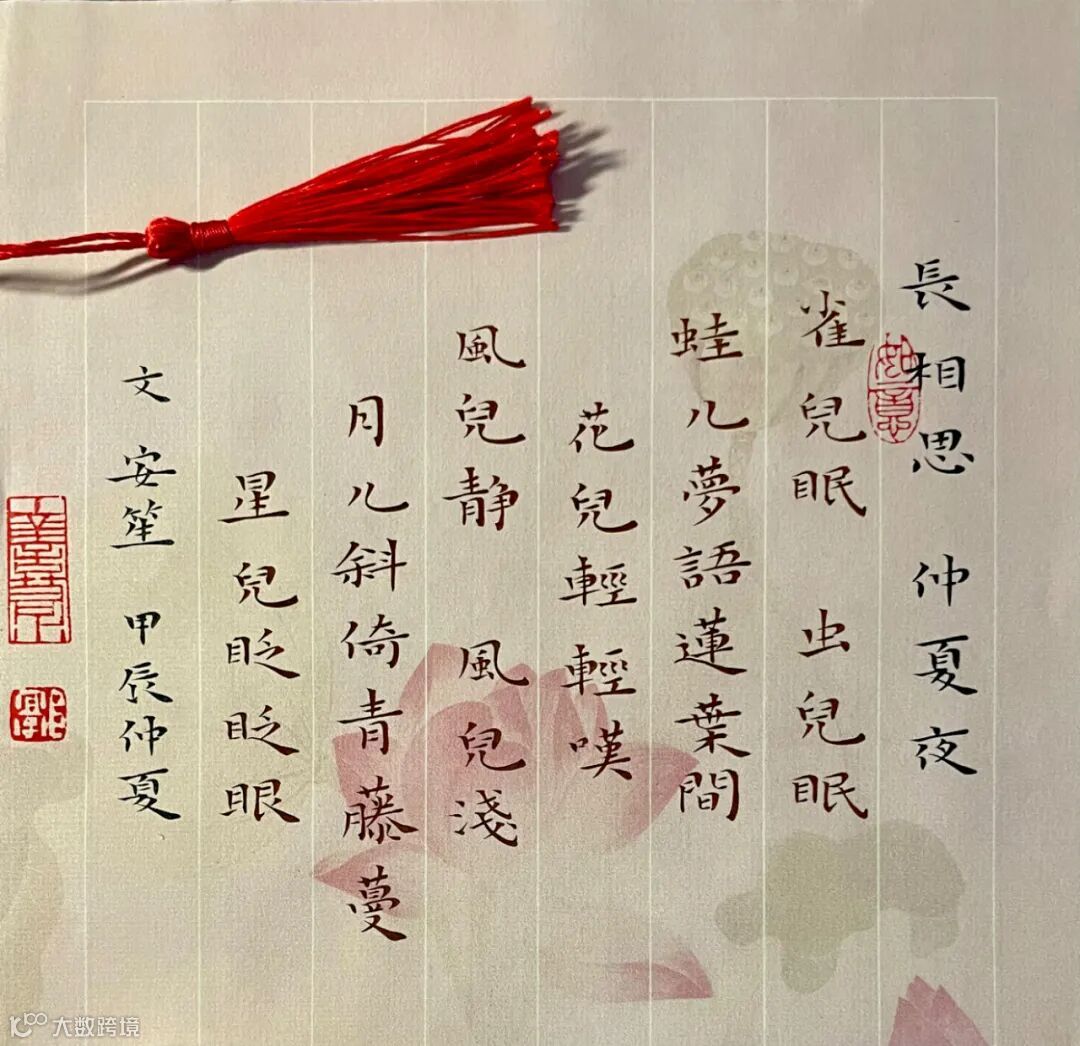 長相思 仲夏夜
雀兒眠 虫兒眠
蛙儿夢語蓮葉間
花兒輕輕嘆
風兒静 風兒淺
月儿斜倚青藤蔓
星兒眨眨眼
文 安笙 甲辰仲夏
如意
大数跨境